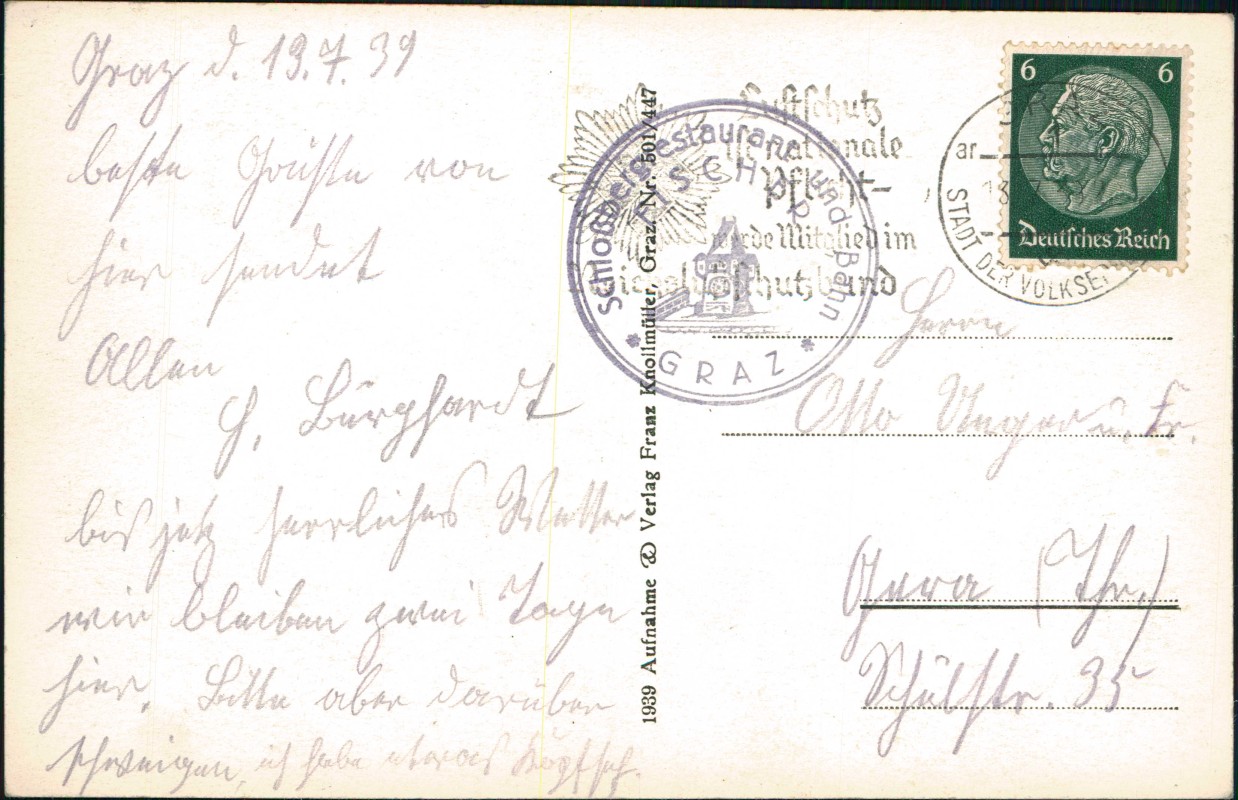 Graz d. 13.7.39
beste Grüße von
hier sendet
Allen
H. Burghardt
bis jetz herrliches Wetter
wir bleiben zwei Tage
hier. Bitte aber darüber
schweigen, ich habe etwas Kopfsch.
1939 Aufnahme Verlag Franz Knollmüller, Graz, Nr. 501/447
Schloßbergrestaurant und Bahn
* GRAZ *
Luftschutz
ist nationale
Pflicht-
werde Mitglied im
Reichsluftschutzbund
GRAZ
STADT DER VOLKSER
6 6
Deutsches Reich
Herrn
Otto Unger u. Fr.
Gera (Thr.)
Schülstr. 35